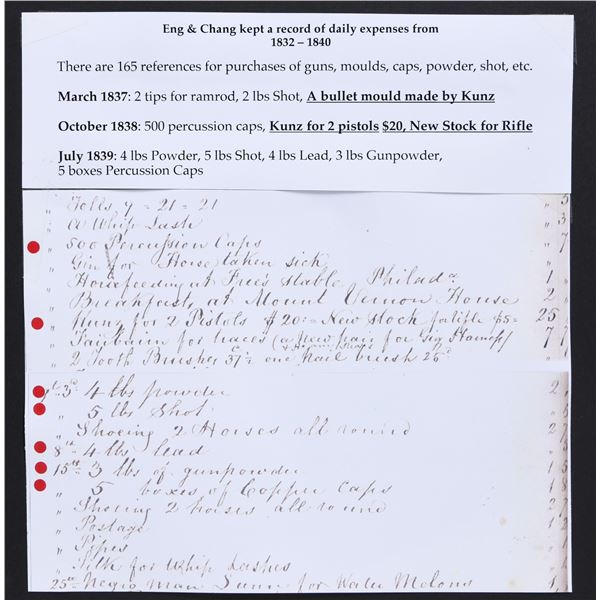 Eng & Chang kept a record of daily expenses from
1832 – 1840
There are 165 references for purchases of guns, moulds, caps, powder, shot, etc.
March 1837: 2 tips for ramrod, 2 lbs Shot, A bullet mould made by Kunz
October 1838: 500 percussion caps, Kunz for 2 pistols $20, New Stock for Rifle
July 1839: 4 lbs Powder, 5 lbs Shot, 4 lbs Lead, 3 lbs Gunpowder,
5 boxes Percussion Caps
" Tolls 9 = 21 = 21
" a Whip Lash 3
" 500 Percussion Caps 7
" Gin for Horse taken sick
" Horsefeeding at Free's Stable Philada 1
" Breakfast at Mount Vernon House 2
" Kunz for 2 Pistols $20:= New Stock for $5= 25
" for traces (a new pair for Gig 7
" 2 Tooth Brushes 37½ one nail brush 25d
3d 4 lbs powder 2
" 5 lbs Shot
" Shoeing 2 Horses all round 2
8th 4 lbs lead
15th 3 lbs of gunpowder 1
" 5 boxes of Copper Caps 1
" Shoeing 2 horses all round 2
" Postage
" Pipes
" Silk for Whip Lashes
25th Negro man for Water Melons 1